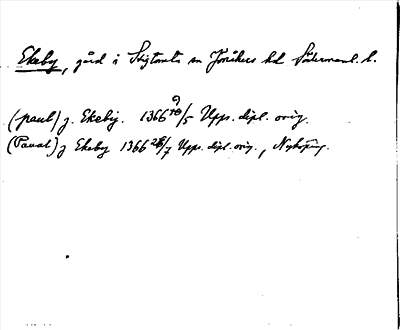 Ekeby, gård i Stigtomta sn Jönåkers hd Södermanl. l.
(paul) j. Ekeby. 1366 /5 Upps. dipl. orig.
(Paual) j Ekeby 1366 28/7 Upps. dipl. orig., Nyköping.